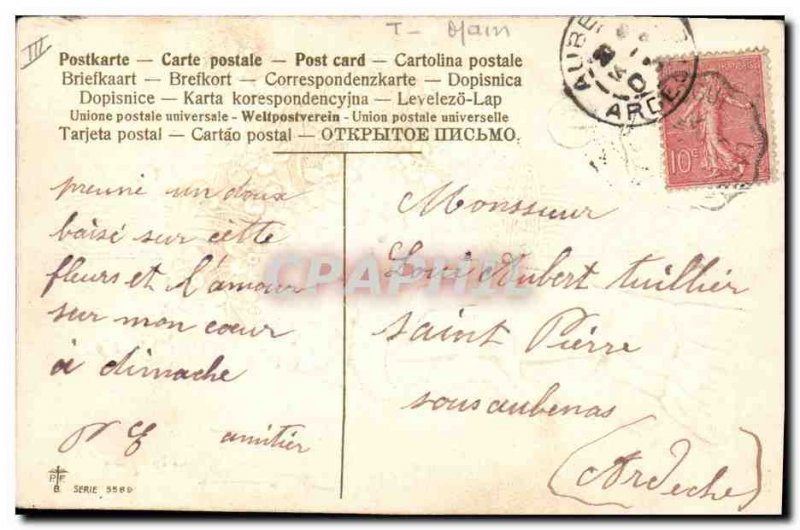 III
T-
Postkarte — Carte postale — Post card — Cartolina postale
Briefkaart — Brefkort — Correspondenzkarte — Dopisnica
Dopisnice — Karta korespondencyjna — Levelező-Lap
Unione postale universale - Weltpostverein - Union postale universelle
Tarjeta postal — Cartão postal — ОТКРЫТОЕ ПИСЬМО.
AUBE
ARDE
10c
preuné un doux
baisé sur cette
fleurs et l'amour
sur mon cœur
à dimache
amitier
Monssieur
Loui Aubert tuillier
saint Pierre
sousaubenas
(Ardeche)
CPAPHIL
PF
B. SERIE 5589